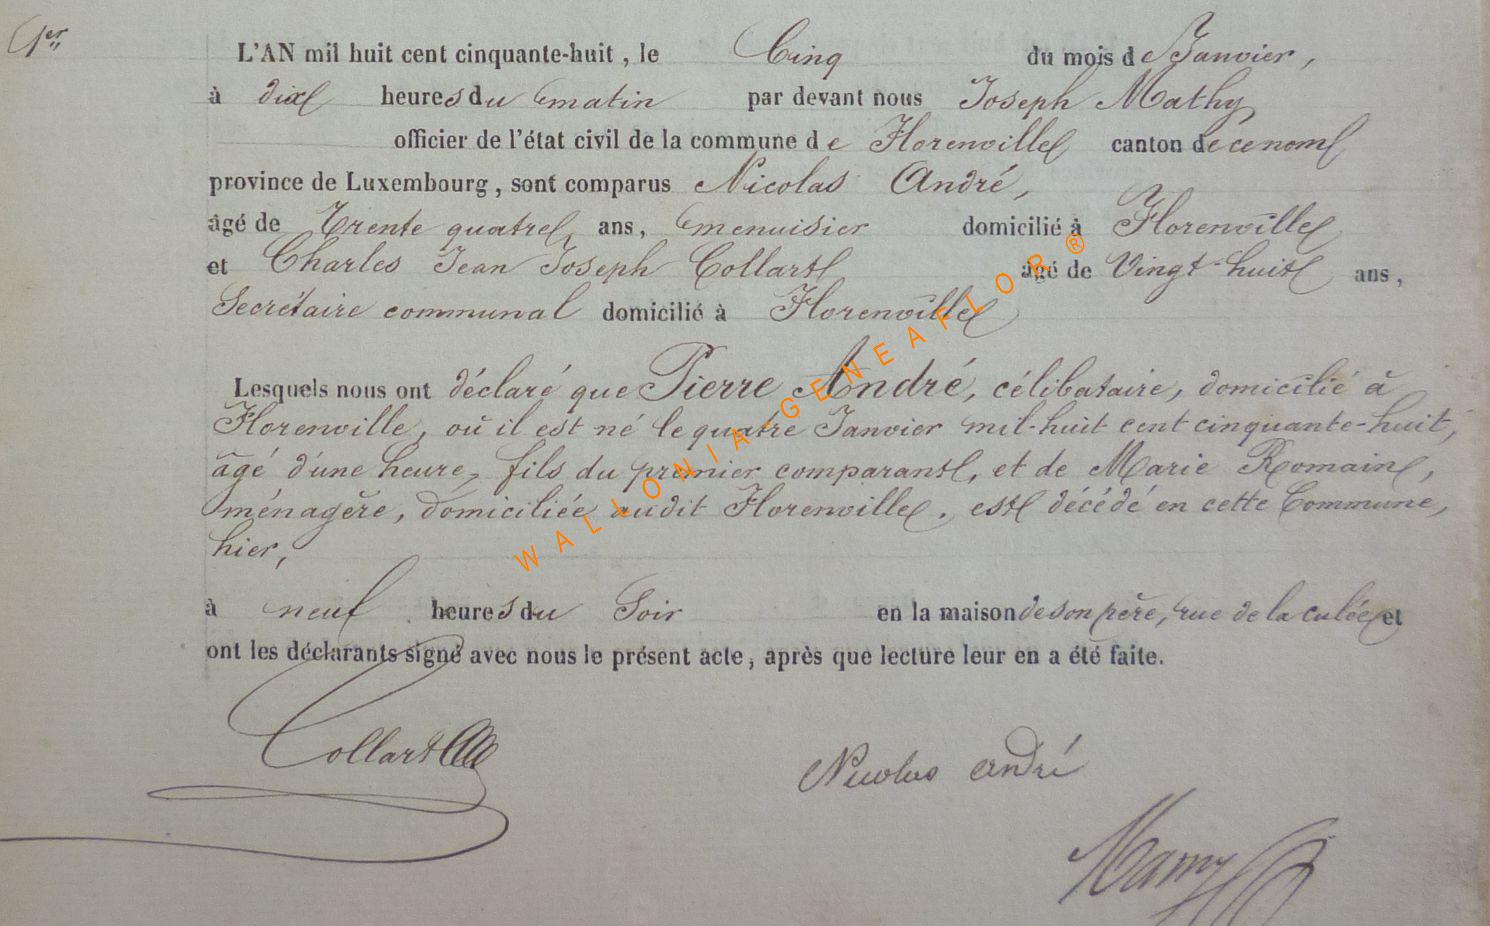 1er
L'AN mil huit cent cinquante-huit, le Cinq du mois de Janvier,
à dix heures du matin par devant nous Joseph Mathy
officier de l'état civil de la commune de Florenville canton de ce nom
province de Luxembourg, sont comparus Nicolas André,
âgé de Trente quatre ans, menuisier domicilié à Florenville
et Charles Jean Joseph Collart âgé de Vingt-huit ans,
Secrétaire communal domicilié à Florenville
Lesquels nous ont déclaré que Pierre André, célibataire, domicilié à
Florenville, où il est né le quatre Janvier mil-huit cent cinquante-huit,
âgé d'une heure, fils du premier comparant, et de Marie Romain,
ménagère, domiciliée audit Florenville, est décédé en cette Commune,
hier,
à neuf heures du Soir en la maison de son père, rue de la culée et
ont les déclarants signé avec nous le présent acte, après que lecture leur en a été faite.
Collart
Nicolas andré
WALLONIA-GENEAFLOR®